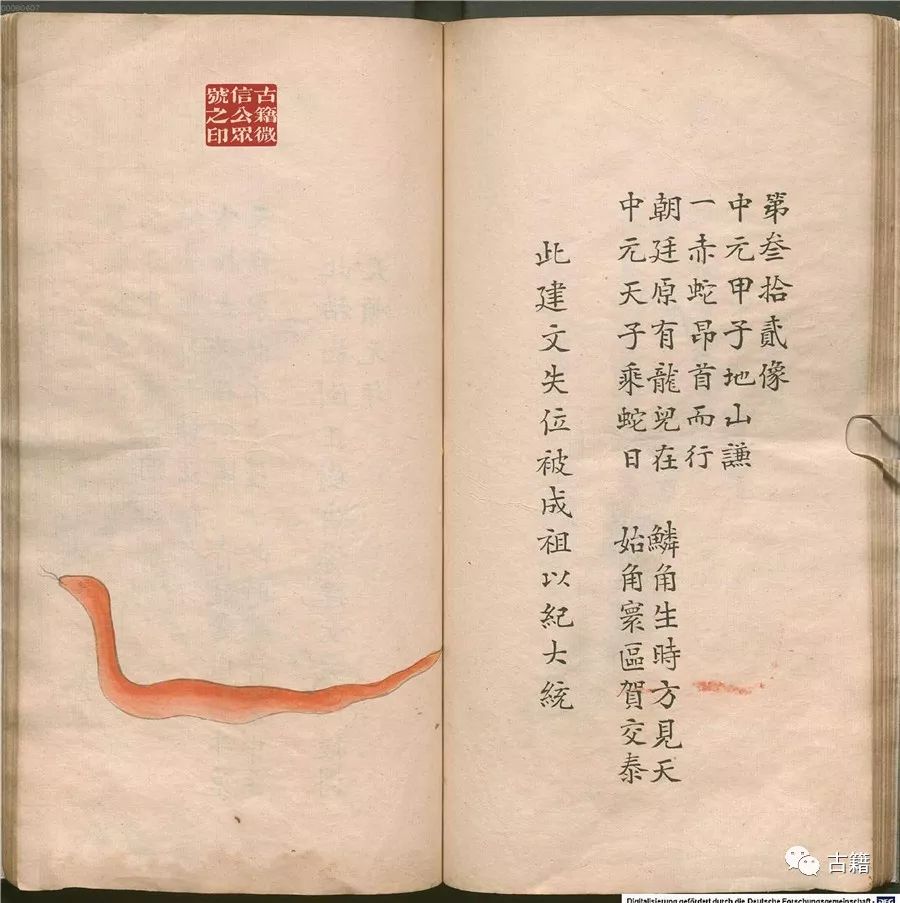 第叁拾貳像
中元甲子地山謙
一赤蛇昂首而行
朝廷原有龍兒在 鱗角生時方見天
中元天子乘蛇日 始角寰區賀交泰
此建文失位被成祖以紀大統
古籍微
信公眾
號之印
00080607
古籍
Digitalisierung gefördert durch die Deutsche Forschungsgemeinschaft
DFG